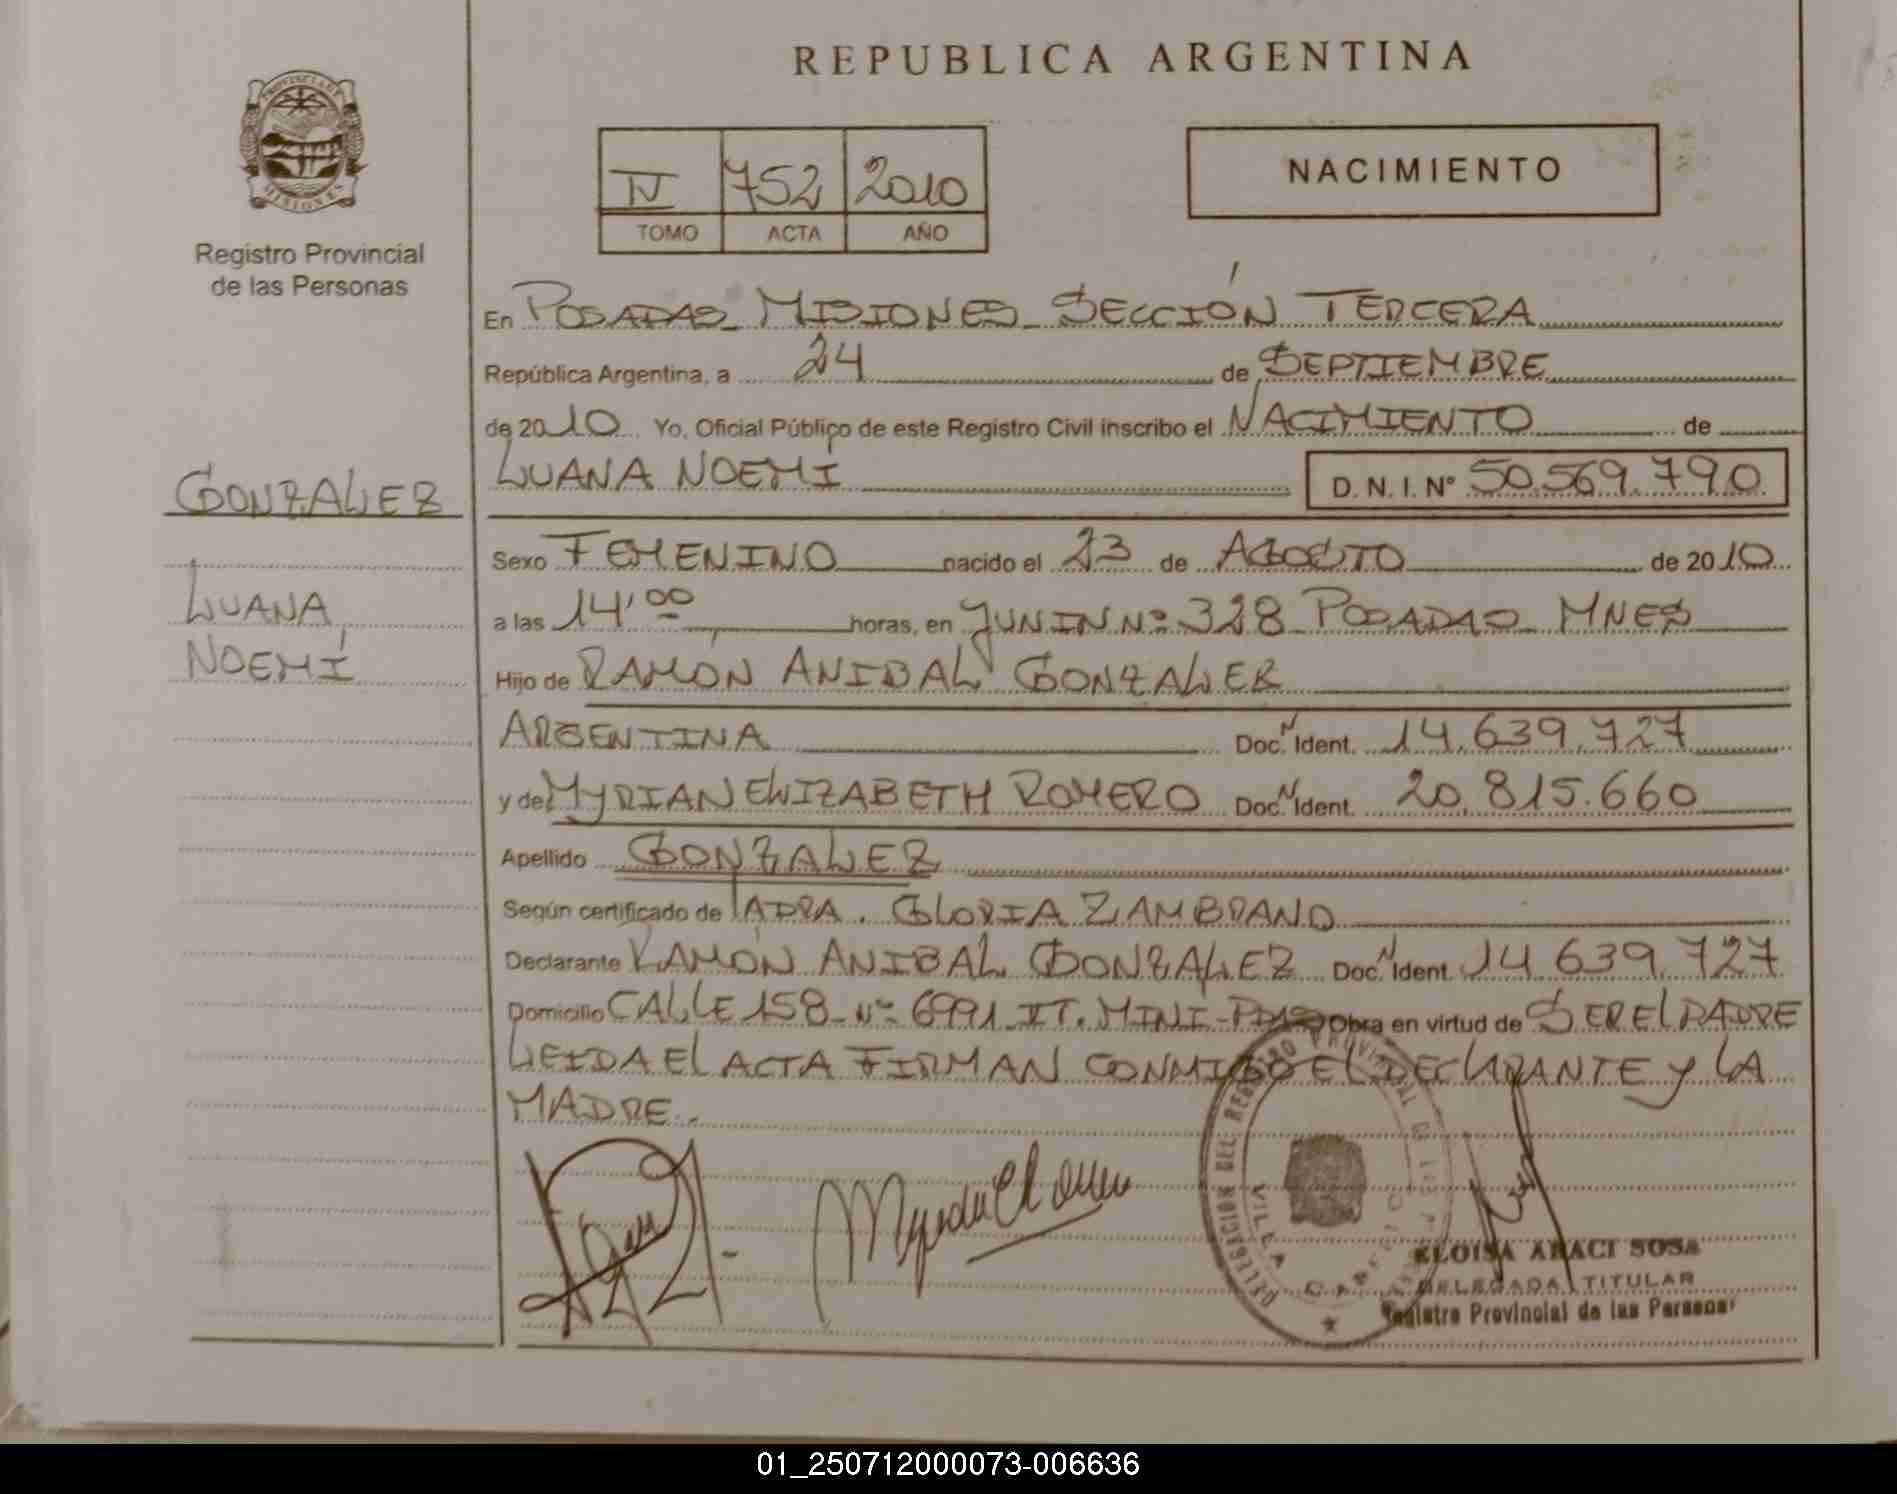 REPUBLICA ARGENTINA
PROVINCIA DE
MISIONES
Registro Provincial
de las Personas
IV 752 2010
TOMO ACTA AÑO
NACIMIENTO
En POSADAS MISIONES SECCIÓN TERCERA
República Argentina, a 24 de SEPTIEMBRE
de 2010 Yo, Oficial Público de este Registro Civil inscribo el NACIMIENTO de
LUANA NOEMÍ D.N.I. Nº 50.569.790
GONZALEZ
LUANA
NOEMÍ
Sexo FEMENINO nacido el 23 de AGOSTO de 2010
a las 14,00 horas, en JUNIN Nº 328 POSADAS MNES
Hijo de RAMÓN ANIBAL GONZALEZ
ARGENTINA Doc. N Ident. 14.639.727
y de MYRIAN ELIZABETH ROMERO Doc. N Ident. 20.815.660
Apellido GONZALEZ
Según certificado de GLORIA ZAMBRANO
Declarante RAMÓN ANIBAL GONZALEZ Doc. N Ident. 14.639.727
Domicilio CALLE 158 Nº 6991 IT. MINI - PDAS Obra en virtud de SER EL PADRE
LEIDA EL ACTA FIRMAN CONMIGO EL DECLARANTE Y LA
MADRE.
DELEGACION DEL REGISTRO PROVINCIAL DE LAS PERSONAS
VILLA CABELLO
ELOISA ARACI SOSA
DELEGADA TITULAR
Registro Provincial de las Personas
01_250712000073-006636